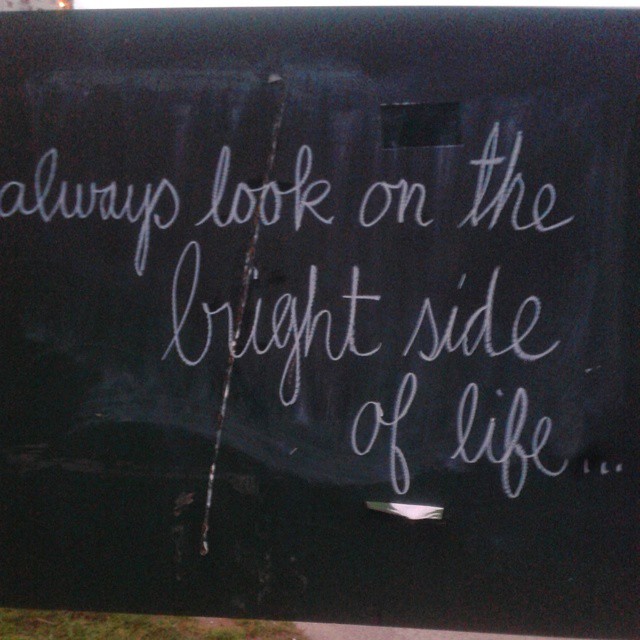 always look on the
bright side
of life...